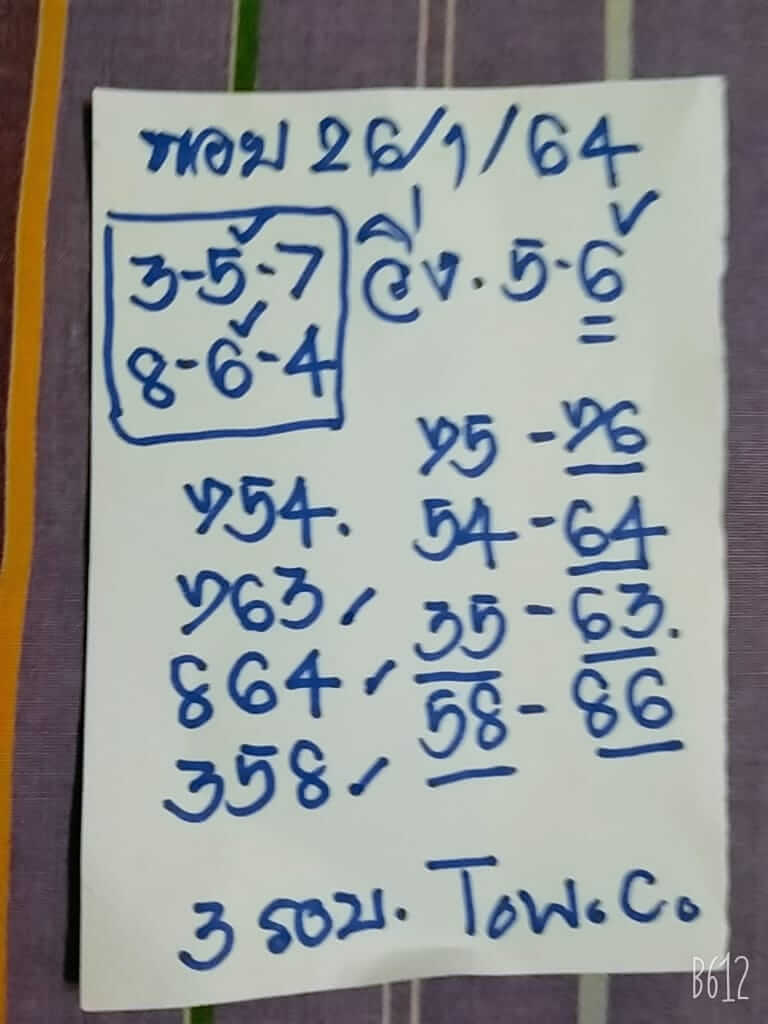 26/1/64
3-5-7 วิ่ง. 5-6
8-6-4
75 - 76
754. 54 - 64
763/ 35 - 63.
864/ 58 - 86
358/
3 รอบ. Tow.C.
B612